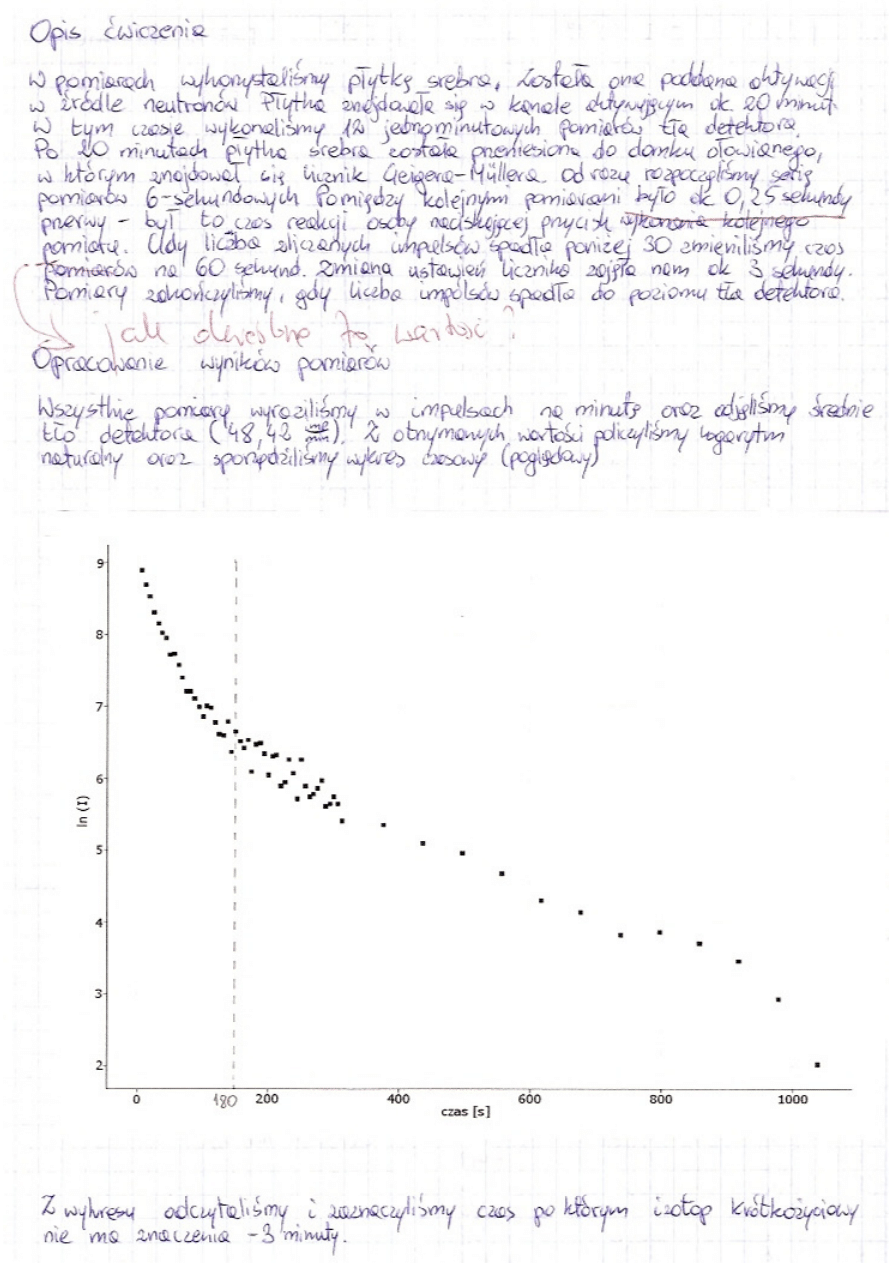 Opis ćwiczenia
W pomiarach wykorzystaliśmy płytkę srebra, została ona poddana aktywacji
w źródle neutronów Płytka znajdowała się w kanale aktywującym ok 20 minut.
W tym czasie wykonaliśmy 12 jednominutowych pomiarów tła detektora.
Po 20 minutach płytka srebra została przeniesiona do domku ołowianego,
w którym znajdował się licznik Geigera-Müllera. Od razu rozpoczęliśmy serię
pomiarów 6-sekundowych Pomiędzy kolejnymi pomiarami było ok 0,25 sekundy
przerwy - był to czas reakcji osoby naciskającej przycisk wykonania kolejnego
pomiaru. Gdy liczba zliczanych impulsów spadła poniżej 30 zmieniliśmy czas
pomiarów na 60 sekund. Zmiana ustawień licznika zajęła nam ok 3 sekundy.
Pomiary zakończyliśmy, gdy liczba impulsów spadła do poziomu tła detektora.
jak określono tą wartość?
Opracowanie wyników pomiarów
Wszystkie pomiary wyraziliśmy w impulsach na minutę oraz odjęliśmy średnie
tło detektora (48,42 imp/min). Z otrzymanych wartości policzyliśmy logarytm
naturalny oraz sporządziliśmy wykres czasowy (poglądowy)
9
8
7
6
5
4
3
2
ln (I)
0 180 200 400 600 800 1000
czas [s]
Z wykresu odczytaliśmy i zaznaczyliśmy czas po którym izotop krótkożyciowy
nie ma znaczenia - 3 minuty.